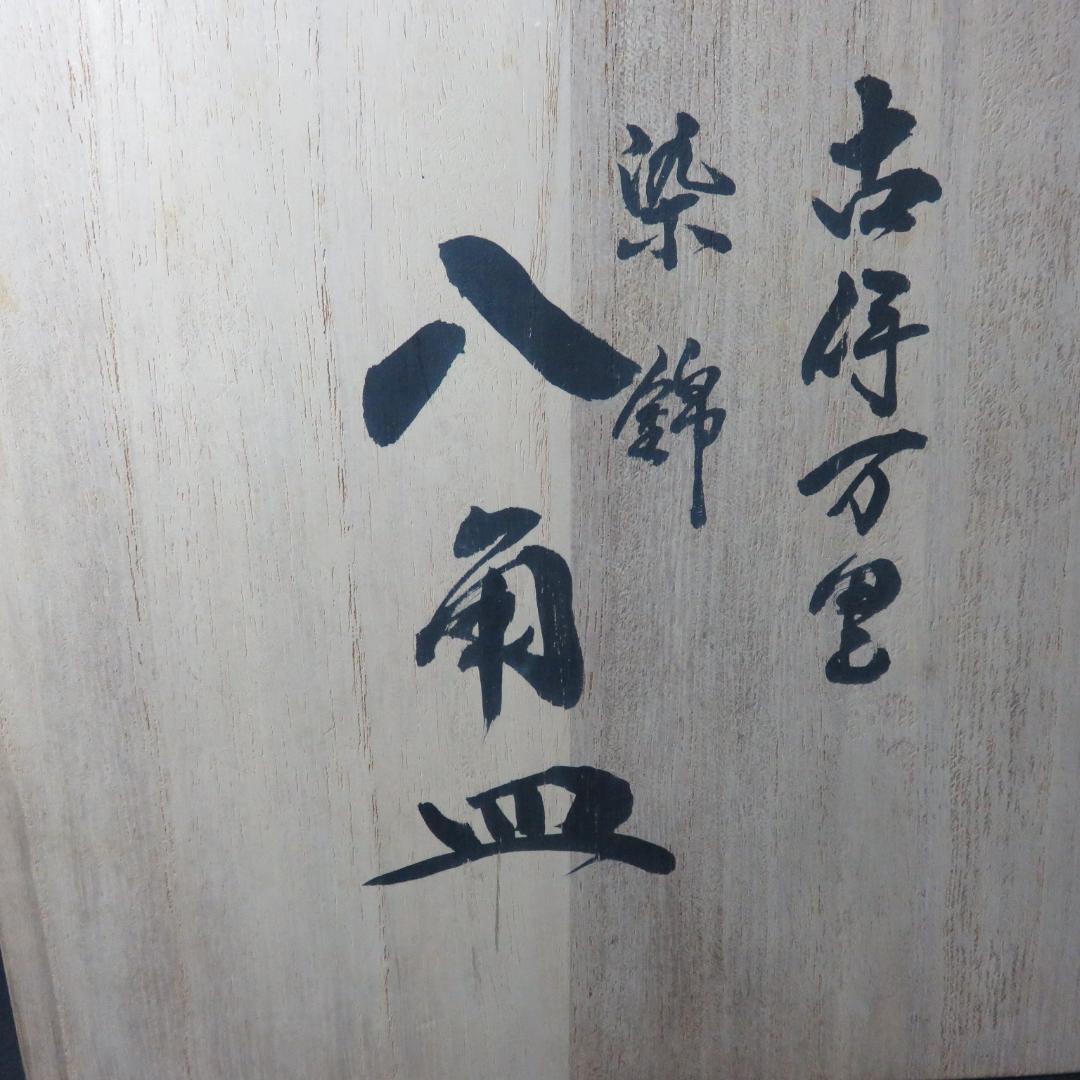 古伊万里
染錦
八角皿